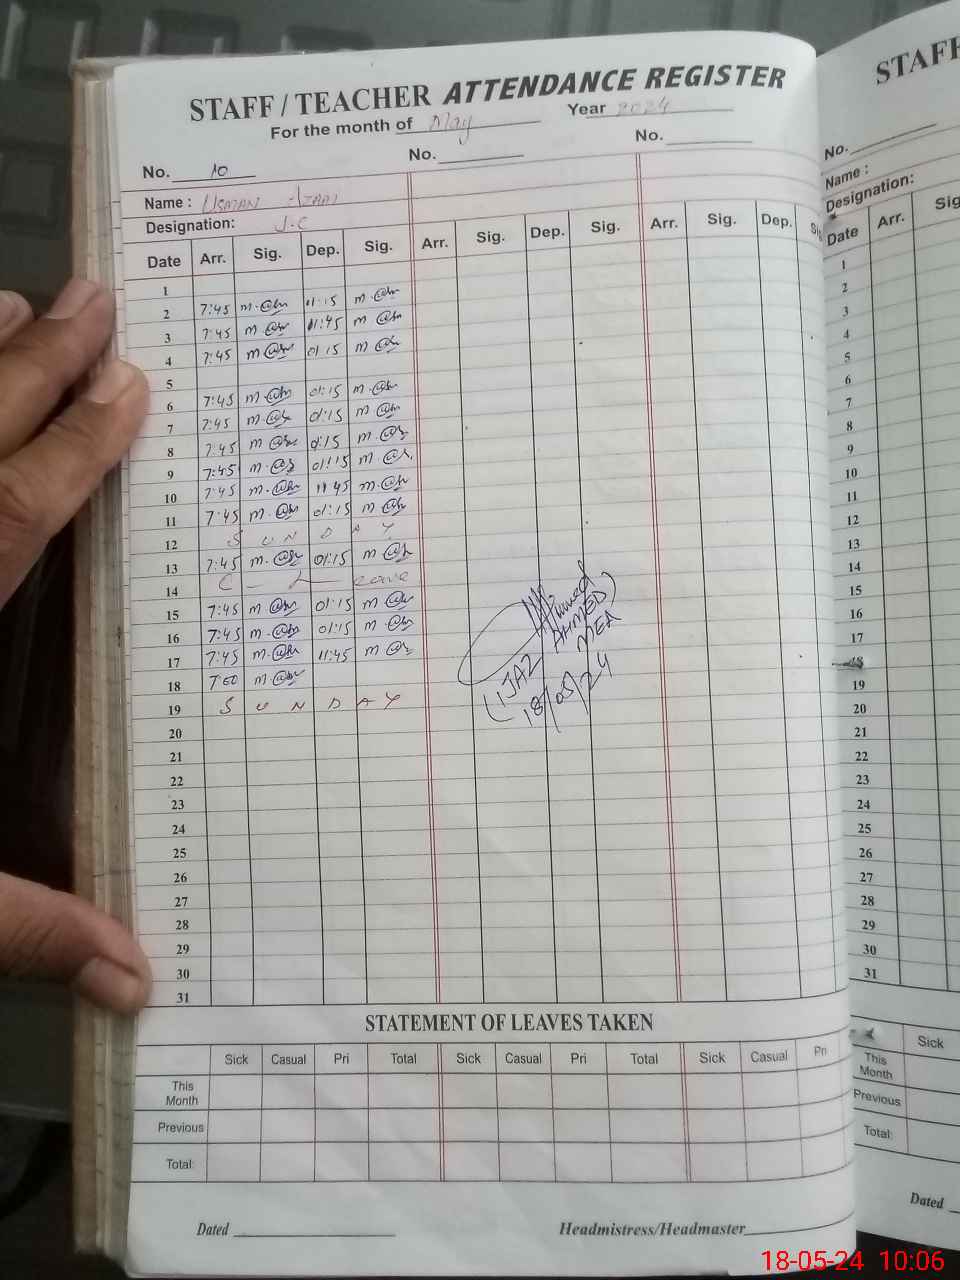 STAFF / TEACHER ATTENDANCE REGISTER
For the month of May Year 2024
No. 10 No. No.
Name : USMAN
Designation: J.C
Date Arr. Sig. Dep. Sig. Arr. Sig. Dep. Sig. Arr. Sig. Dep.
1
2 7:45 11:15
3 7:45 11:45
4 7:45 01:15
5
6 7:45 01:15
7 7:45 01:15
8 7:45 01:15
9 7:45 01:15
10 7:45 11:45
11 7:45 01:15
12 S U N D A Y
13 7:45 01:15
14 C - L eave
15 7:45 01:15
16 7:45 01:15
17 7:45 11:45
18
19 S U N D A Y
20
21
22
23
24
25
26
27
28
29
30
31
(IJAZ AHMED)
MEA
18/05/24
STATEMENT OF LEAVES TAKEN
Sick Casual Pri Total Sick Casual Pri Total Sick Casual Pri
This Month
Previous
Total:
Dated Headmistress/Headmaster
STAFF
No.
Name :
Designation:
Date Arr. Sig
1
2
3
4
5
6
7
8
9
10
11
12
13
14
15
16
17
18
19
20
21
22
23
24
25
26
27
28
29
30
31
Sick
This Month
Previous
Total:
Dated
18-05-24 10:06